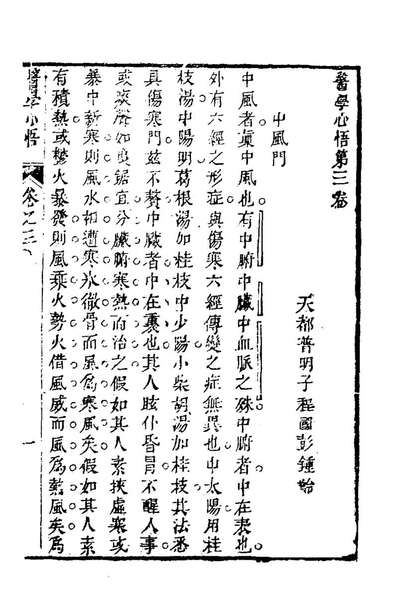 醫學心悟第三卷
天都普明子程國彭鍾齡
中風門
中風者眞中風也有中腑中臟中血脈之殊中腑者中在表也
外有六經之形症與傷寒六經傳變之症無異也中太陽用桂
枝湯中陽明葛根湯加桂枝中少陽小柴胡湯加桂枝其法悉
具傷寒門茲不贅中臟者中在裏也其人眩仆昏冒不醒人事
或痰聲如曳鋸宜分臟腑寒熱而治之假如其人素挾虛寒或
暴中新寒則風水相遭寒冰徹骨而風爲寒風矣假如其人素
有積熱或鬱火暴發則風乘火勢火借風威而風爲熱風矣爲
醫學心悟 卷之三 一